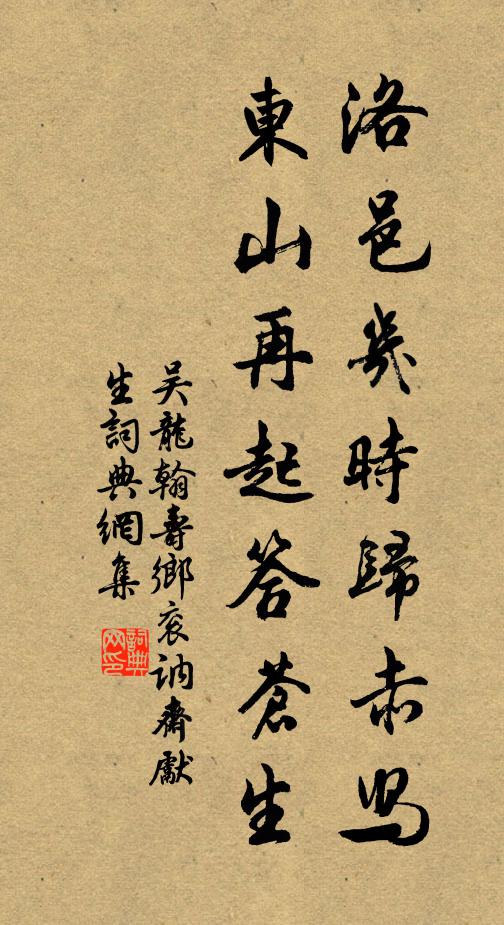 洛邑幾時歸赤舄
東山再起答蒼生
吴龍翰壽鄉衮訥齋獻
生詞典網集
詞典网印